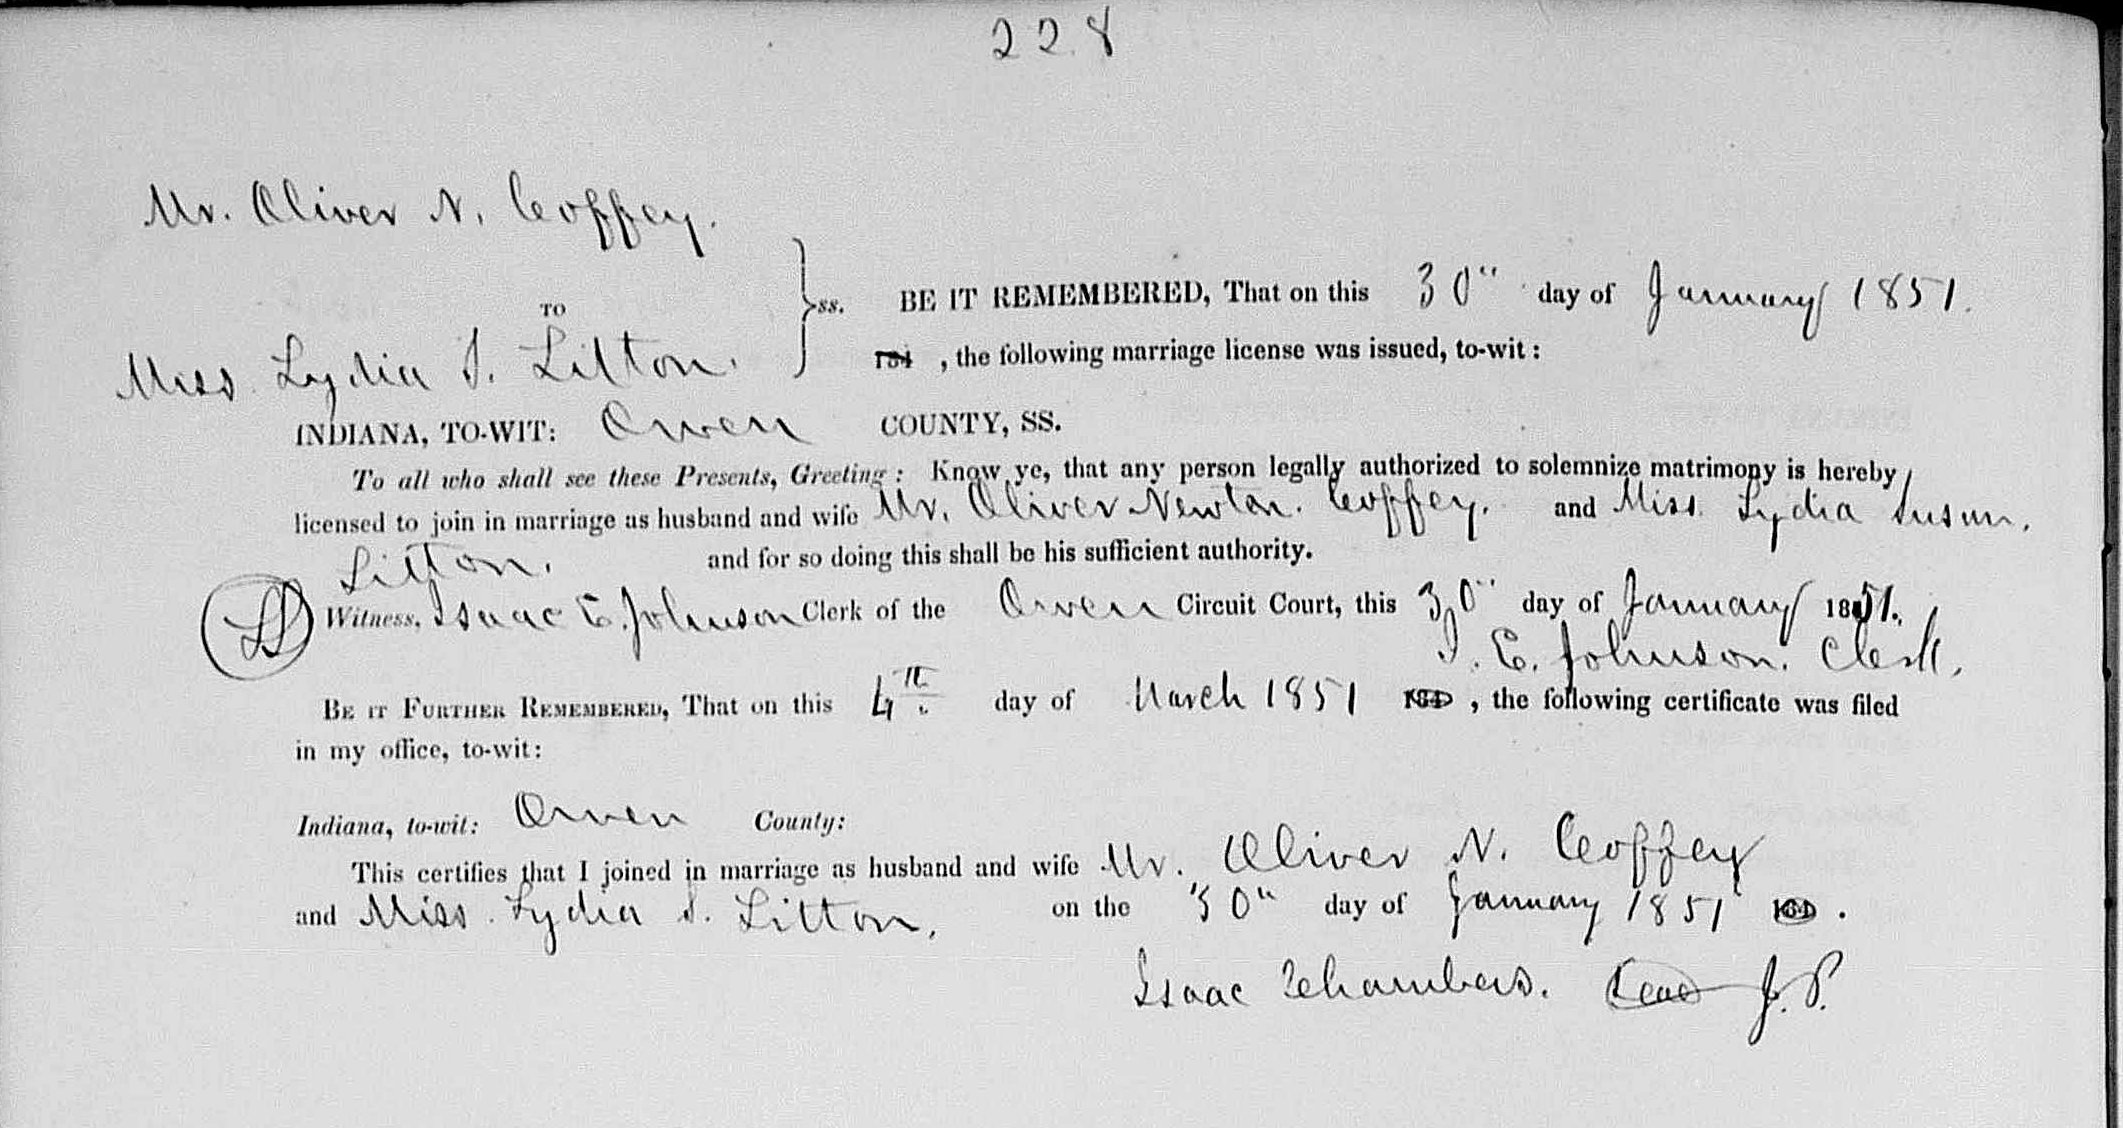 228
Mr. Oliver N. Coffey.
TO
Miss Lydia S. Litton.
ss. BE IT REMEMBERED, That on this 30" day of January 1851.
184 , the following marriage license was issued, to-wit:
INDIANA, TO-WIT: Owen COUNTY, SS.
To all who shall see these Presents, Greeting: Know ye, that any person legally authorized to solemnize matrimony is hereby
licensed to join in marriage as husband and wife Mr. Oliver Newton. Coffey. and Miss. Lydia Susan.
Litton. and for so doing this shall be his sufficient authority.
Witness, Isaac E. Johnson Clerk of the Owen Circuit Court, this 30" day of January 1851.
I. E. Johnson. Clerk.
BE IT FURTHER REMEMBERED, That on this 4th day of March 1851 184 , the following certificate was filed
in my office, to-wit:
Indiana, to-wit: Owen County:
This certifies that I joined in marriage as husband and wife Mr. Oliver N. Coffey
and Miss. Lydia S. Litton. on the 30" day of January 1851 184 .
Isaac Chambers. Seal J. P.